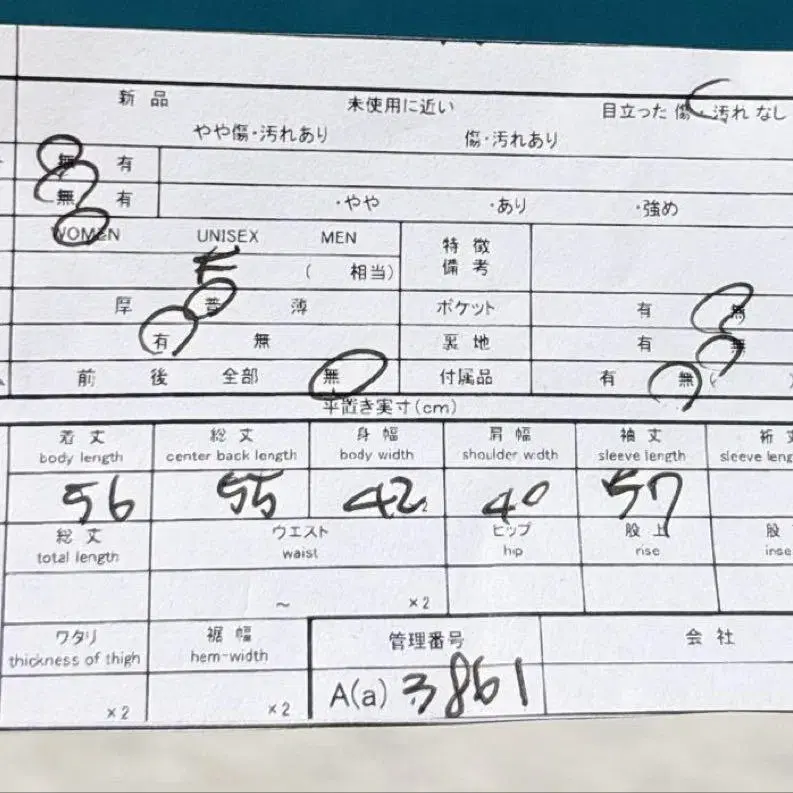 新品 未使用に近い 目立った傷・汚れなし
やや傷・汚れあり 傷・汚れあり
無 有
無 有 ・やや ・あり ・強め
WOMEN UNISEX MEN 特徴
備考
F ( 相当)
厚 普 薄 ポケット 有 無
有 無 裏地 有 無
前 後 全部 無 付属品 有 無 ( )
平置き実寸(cm)
着丈 総丈 身幅 肩幅 袖丈 裄丈
body length center back length body width shoulder width sleeve length sleeve leng
56 55 42 40 57
総丈 ウエスト ヒップ 股上 股
total length waist hip rise inse
~ ×2
ワタリ 裾幅 管理番号 会社
thickness of thigh hem-width
×2 ×2 A(a) 3861